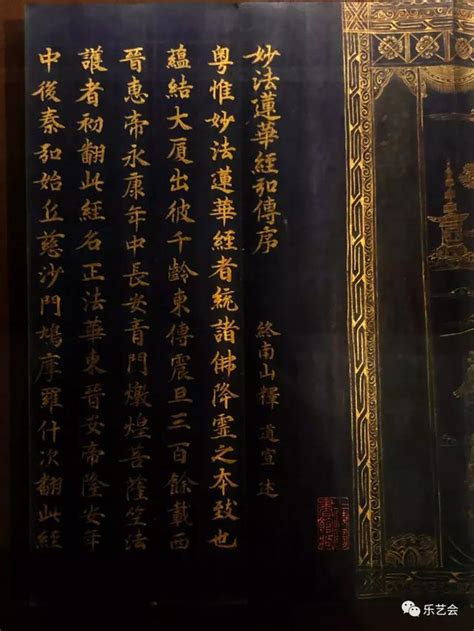 妙法蓮華經弘傳序
終南山釋道宣述
粵惟妙法蓮華經者統諸佛降霊之本致也
蘊結大厦出彼千齡東傳震旦三百餘載西
晉惠帝永康年中長安青門燉煌菩薩竺法
護者初翻此經名正法華東晉安帝隆安年
中後秦弘始丘慈沙門鳩摩羅什次翻此經
乐艺会